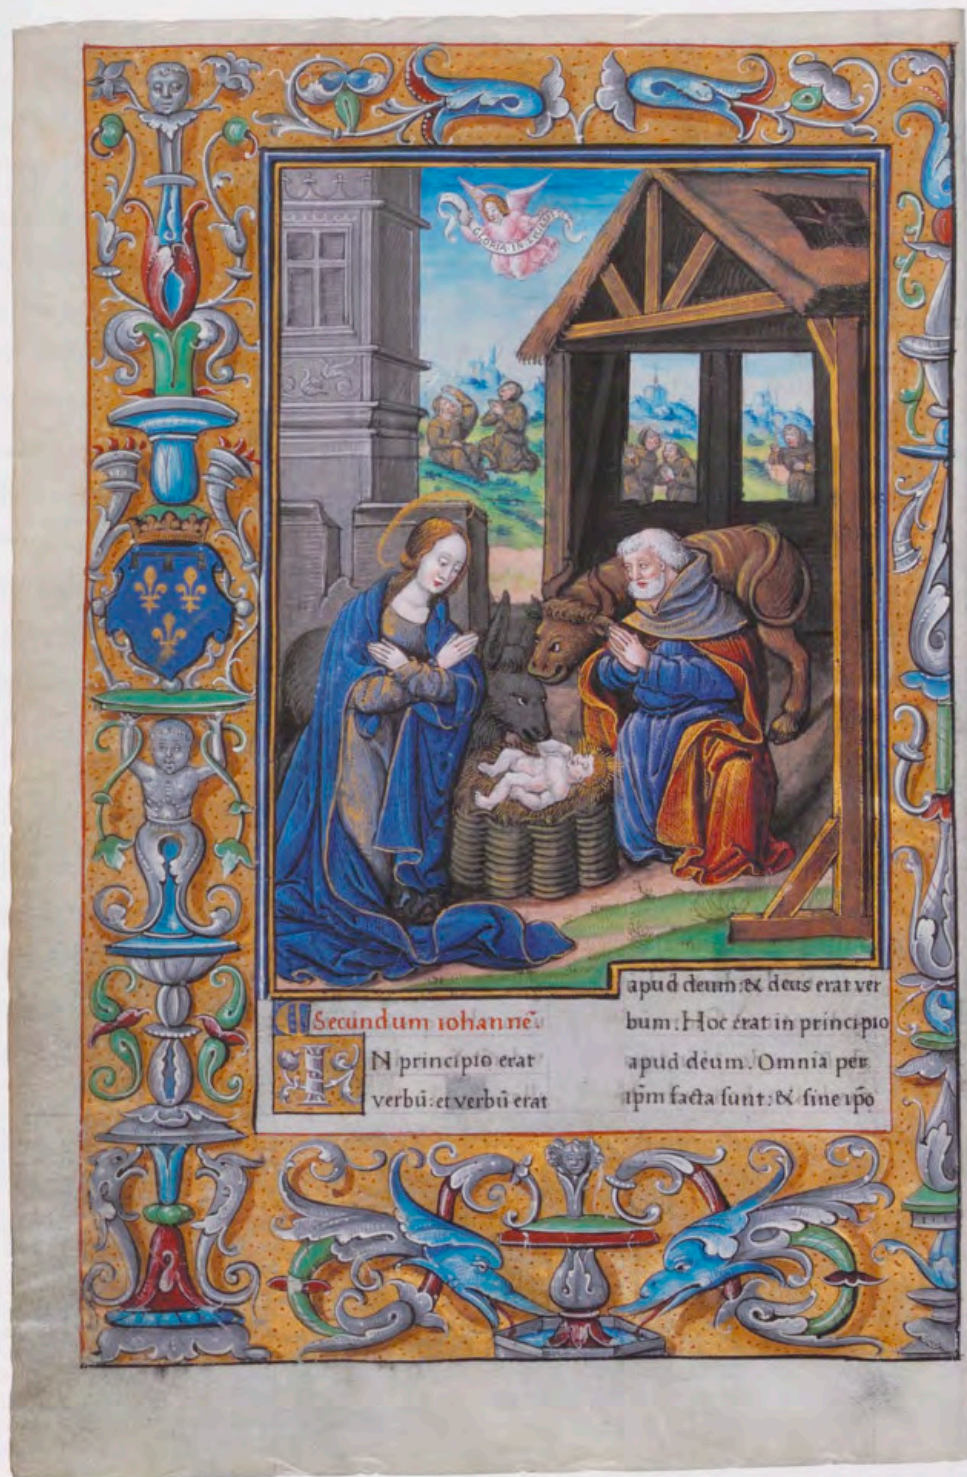 GLORIA IN EXCELSIS
Secundum iohannē
IN principio erat
verbū: et verbū erat
apud deum: & deus erat ver
bum: Hoc erat in principio
apud deum. Omnia per
ip̄m facta sunt: & sine ip̄o